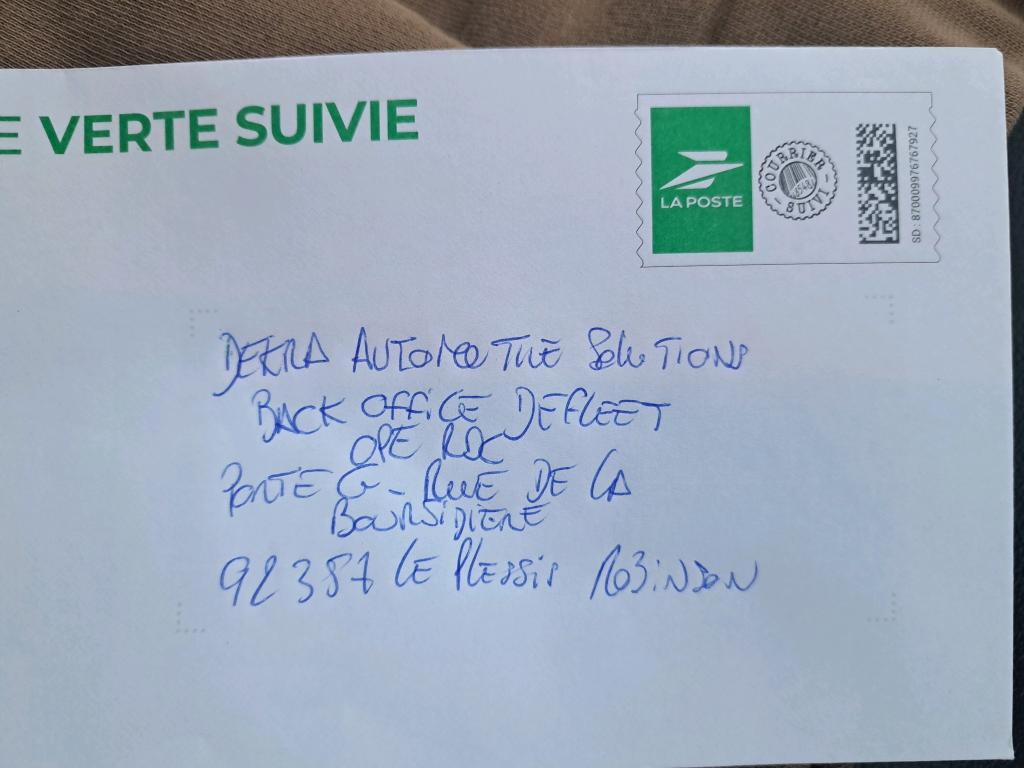 E VERTE SUIVIE
LA POSTE
COURRIER
SUIVI
SD : 87000997676792​7
DEKRA AUTOMOTIVE SOLUTIONS
BACK OFFICE DEFLEET
OPE RDC
PORTE G - RUE DE LA
BOURSIDIERE
92357 LE PLESSIS ROBINSON